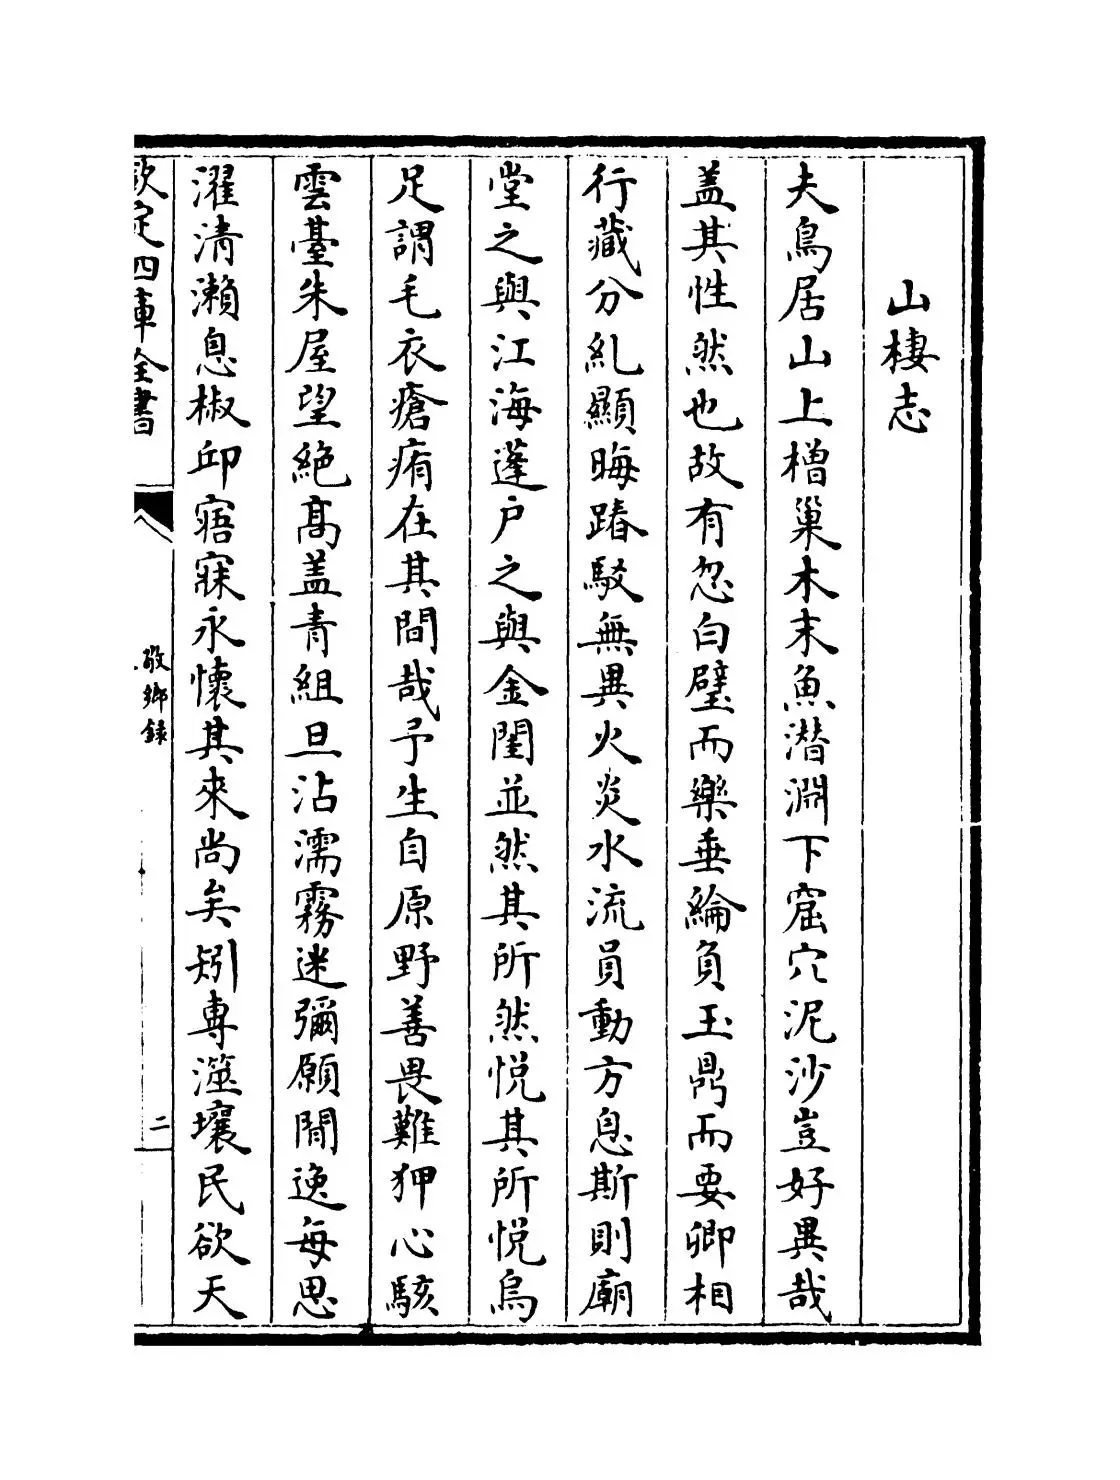 山棲志
夫鳥居山上橧巢木末魚潛淵下窟穴泥沙豈好異哉
盖其性然也故有忽白璧而樂垂綸負玉鼎而要卿相
行藏分糺顯晦踳駁無異火炎水流員動方息斯則廟
堂之與江海蓬户之與金閨並然其所然悅其所悅烏
足謂毛衣瘡痏在其間哉予生自原野善畏難狎心駭
雲臺朱屋望絶髙盖青組且沾濡霧迷彌願閒逸每思
濯清瀬息椒邱寤寐永懷其來尚矣矧專澨壤民欲天
欽定四庫全書
敬鄉録
二